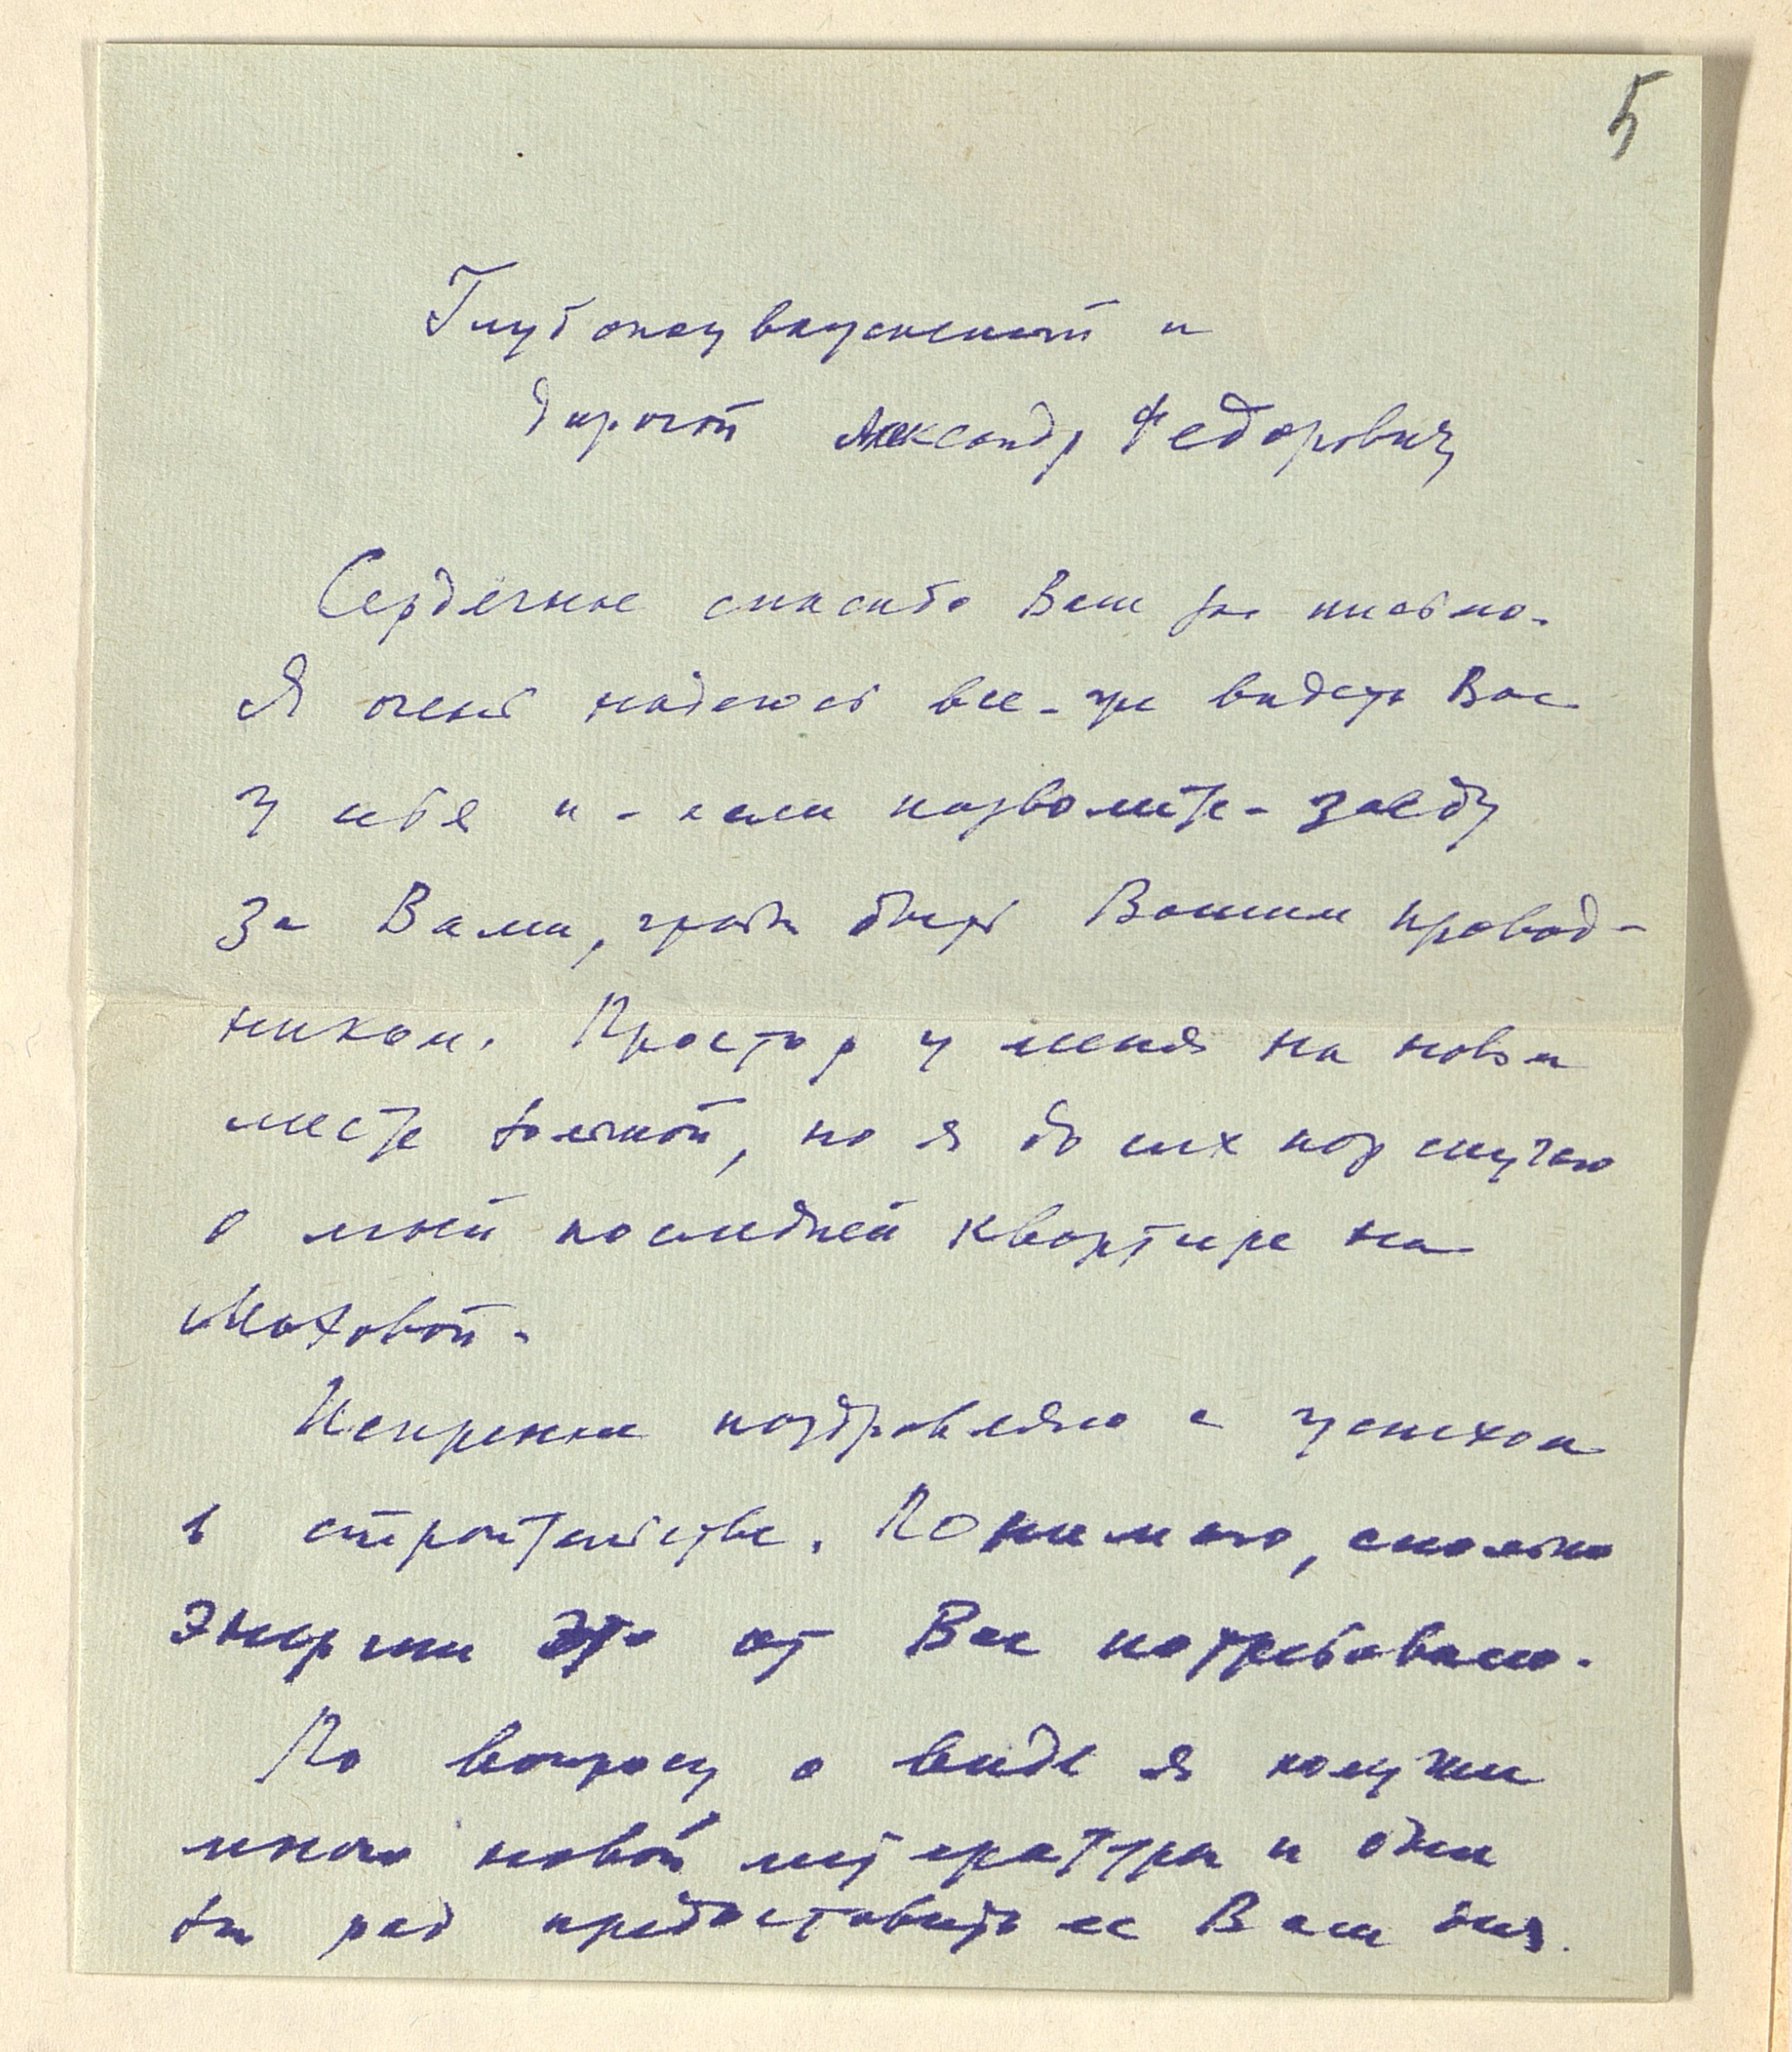 5
Глубокоуважаемый и
дорогой Александр Федорович
Сердечное спасибо Вам за письмо.
Я очень надеюсь все-же видеть Вас
у себя и - если позволите - заеду
за Вами, чтобы быть Вашим провод-
ником. Простор у меня на новом
месте большой, но я до сих пор скучаю
о моей последней квартире на
Моховой.
Искренне поздравляю с успехом
в строительстве. Понимаю, сколько
энергии это от Вас потребовало.
По вопросу о виде я получил
много новой литературы и
бы рад предоставить ее Вам для